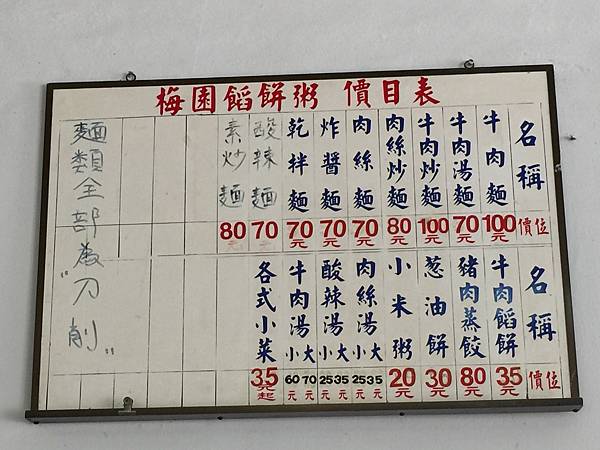 梅園餡餅粥 價目表
名稱 牛肉麵 牛肉湯麵 牛肉炒麵 肉絲炒麵 肉絲麵 炸醬麵 乾拌麵 酸辣麵 素炒麵
價位 100元 70元 100元 80元 70元 70元 70元 70 80
名稱 牛肉餡餅 豬肉蒸餃 葱油餅 小米粥 肉絲湯大小 酸辣湯大小 牛肉湯大小 各式小菜
價位 35元 80元 30元 20元 35元 25元 35元 25元 70元 60元 35元起
麵類全部為"刀削"